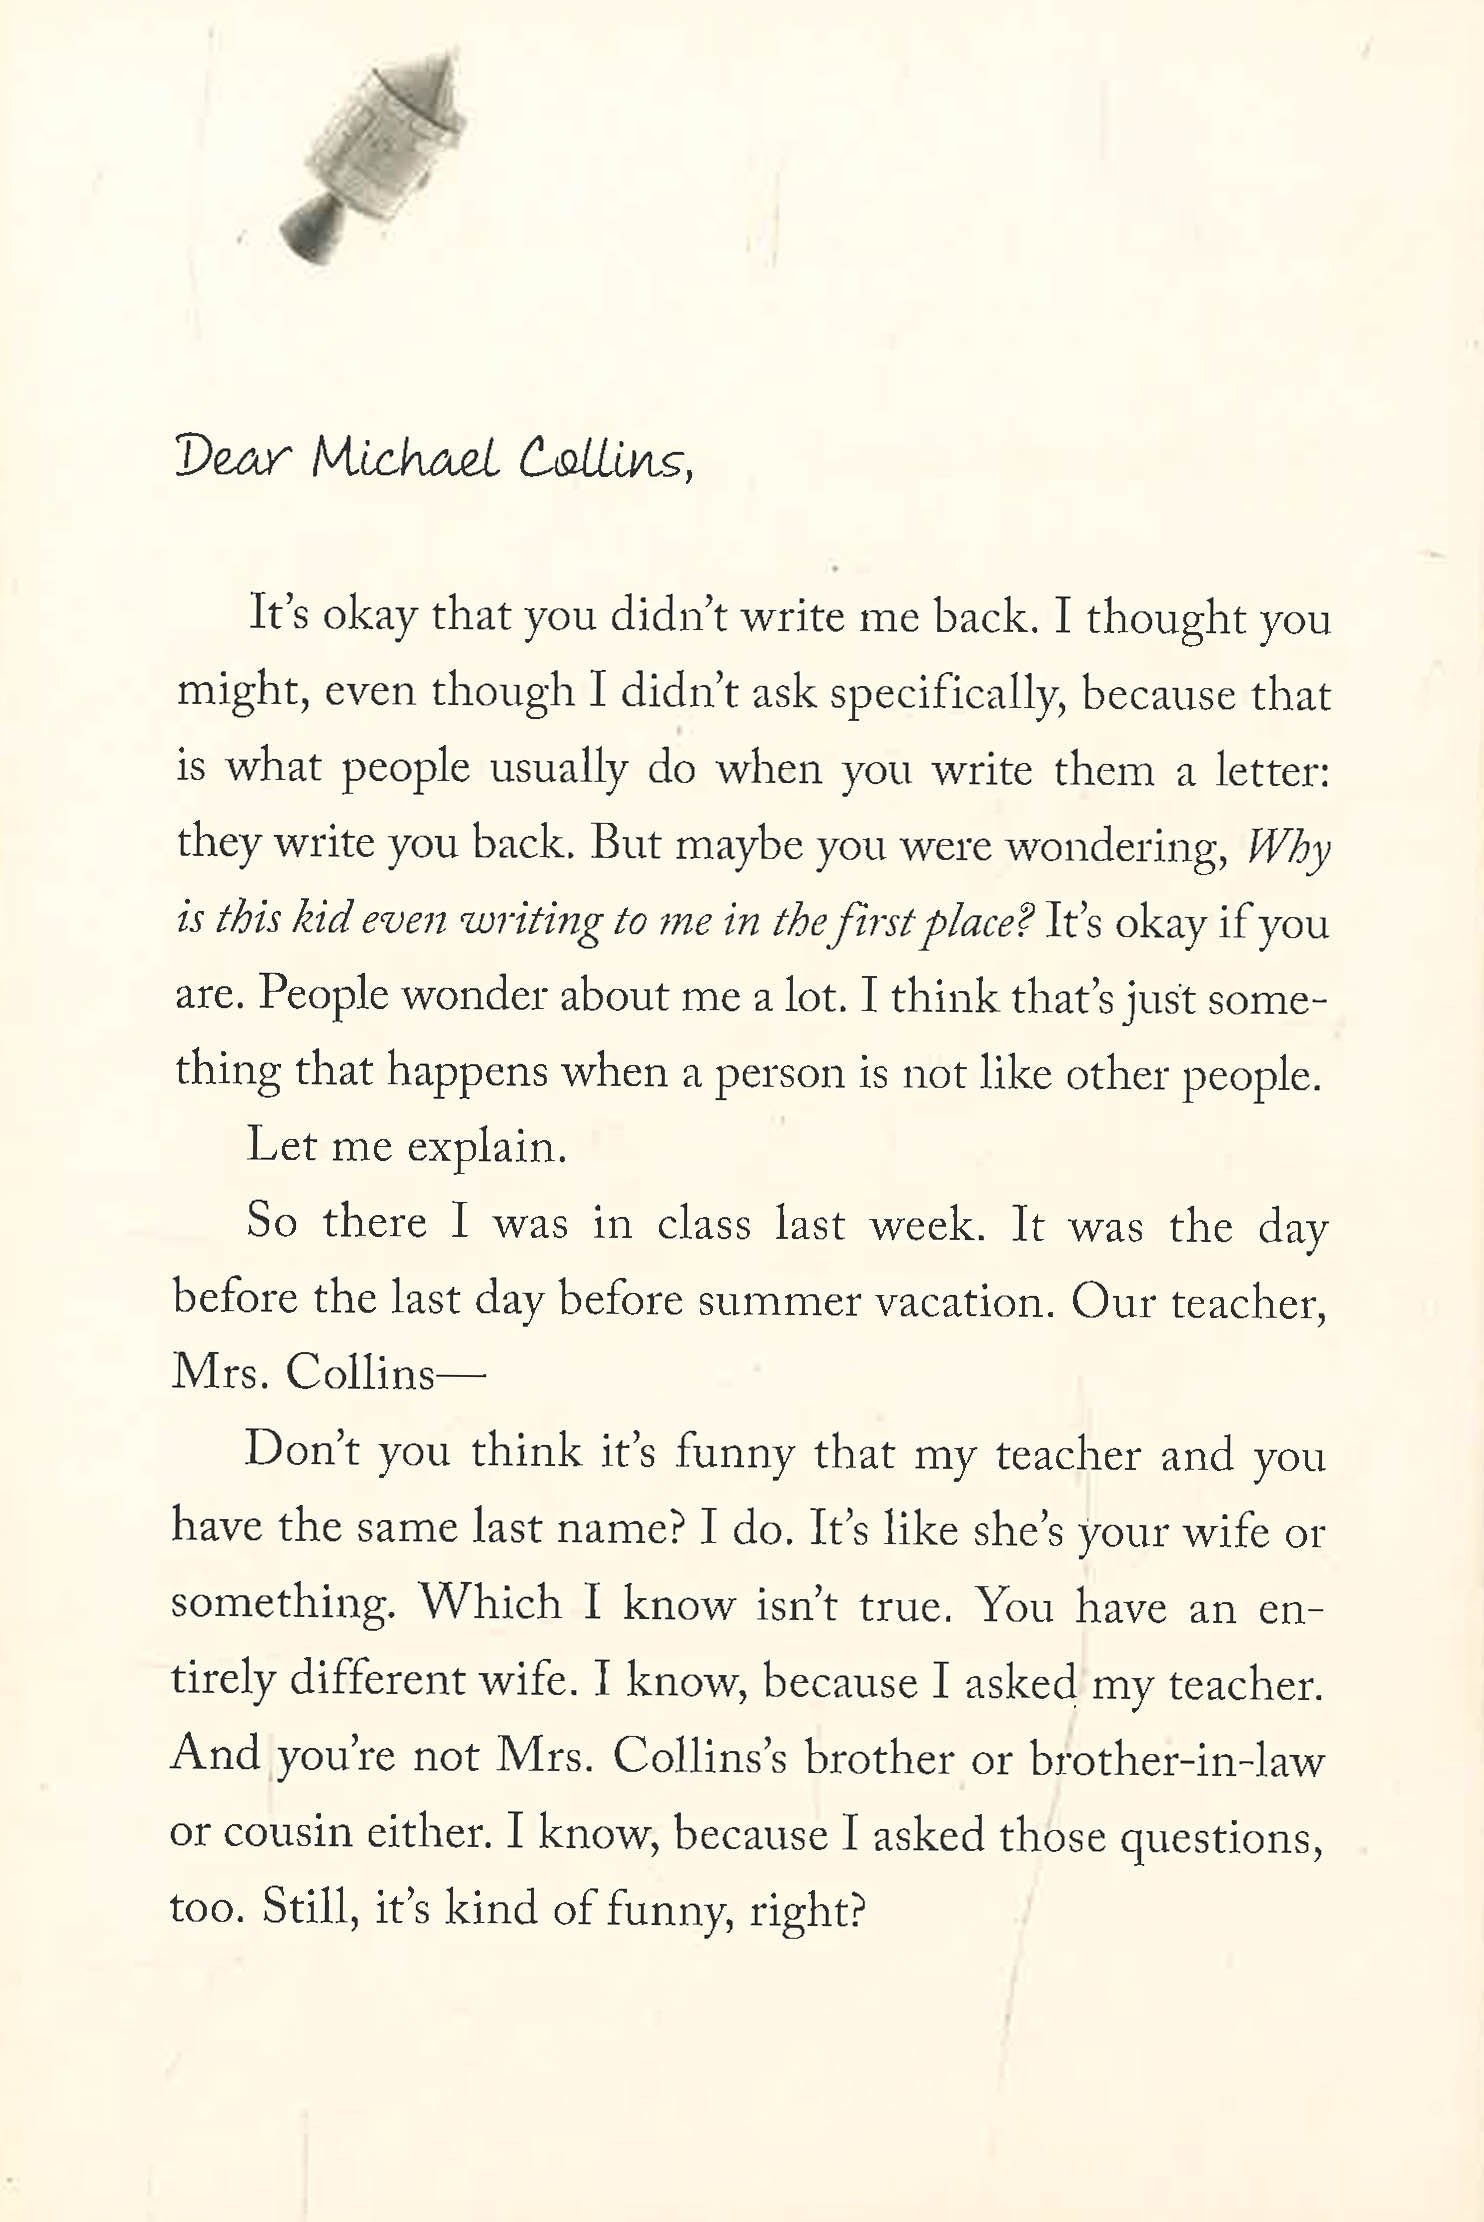 Dear Michael Collins,
It's okay that you didn't write me back. I thought you
might, even though I didn't ask specifically, because that
is what people usually do when you write them a letter:
they write you back. But maybe you were wondering, Why
is this kid even writing to me in the first place? It's okay if you
are. People wonder about me a lot. I think that's just some-
thing that happens when a person is not like other people.
Let me explain.
So there I was in class last week. It was the day
before the last day before summer vacation. Our teacher,
Mrs. Collins—
Don't you think it's funny that my teacher and you
have the same last name? I do. It's like she's your wife or
something. Which I know isn't true. You have an en-
tirely different wife. I know, because I asked my teacher.
And you're not Mrs. Collins's brother or brother-in-law
or cousin either. I know, because I asked those questions,
too. Still, it's kind of funny, right?